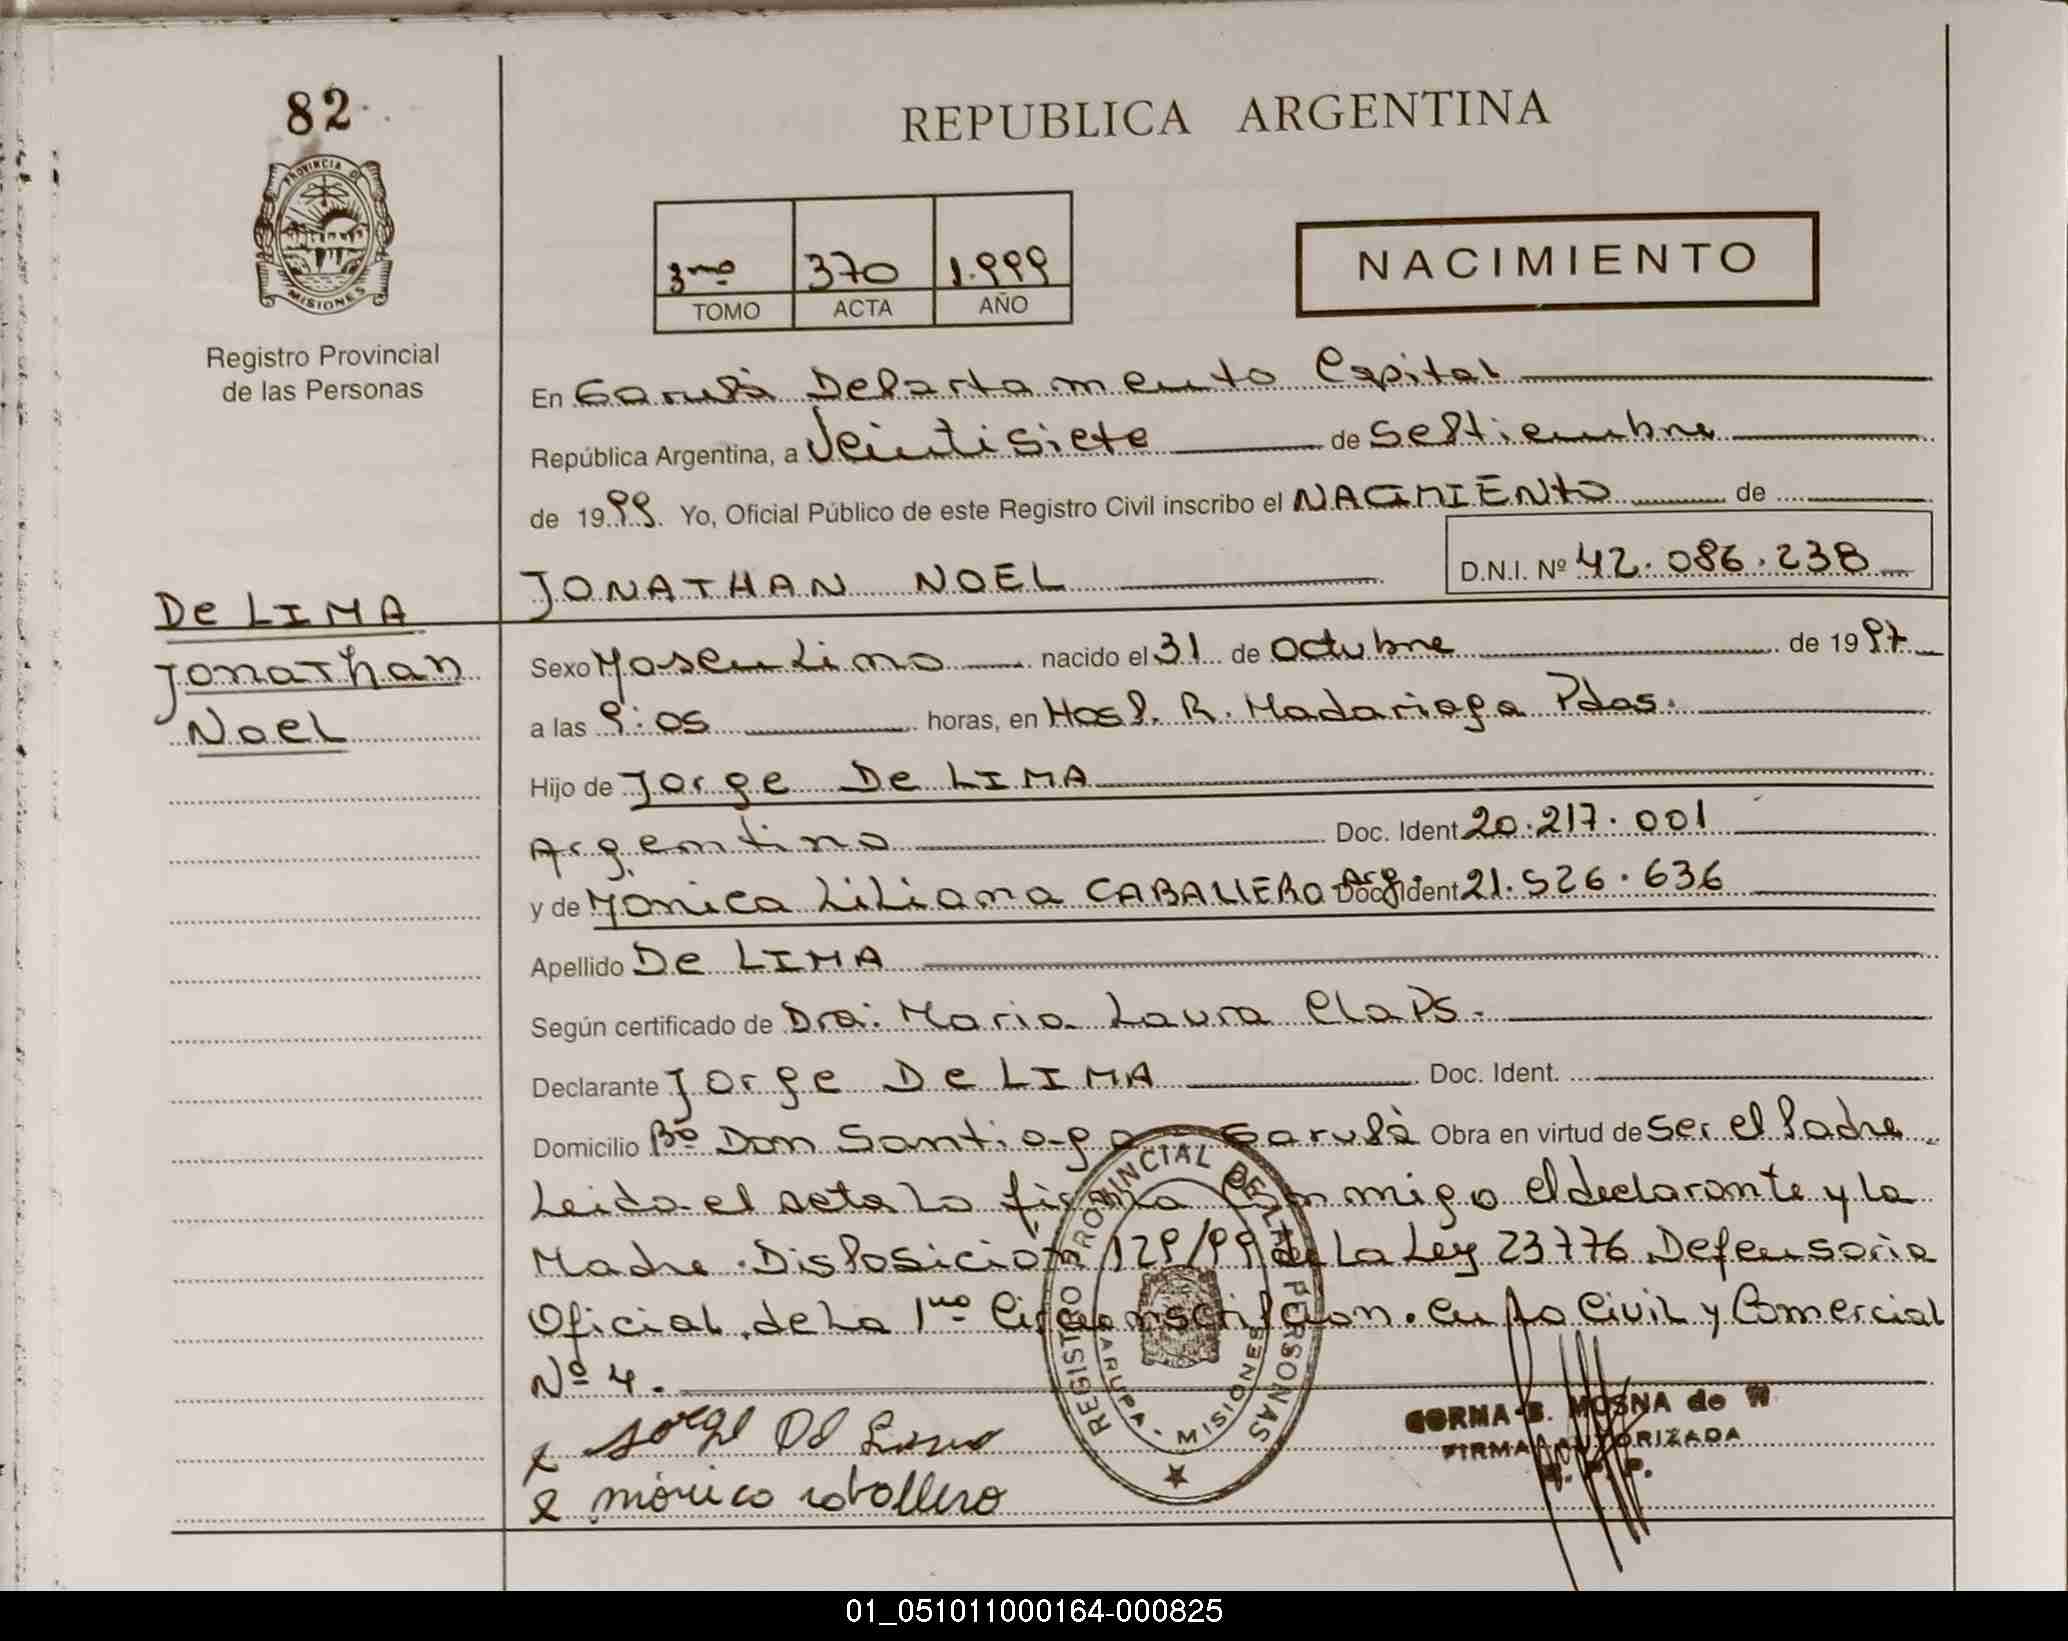 82
REPUBLICA ARGENTINA
PROVINCIA DE
MISIONES
Registro Provincial
de las Personas
3ro 370 1.999
TOMO ACTA AÑO
NACIMIENTO
En Garupá Departamento Capital
República Argentina, a Veintisiete de Septiembre
de 1999. Yo, Oficial Público de este Registro Civil inscribo el NACIMIENTO de
JONATHAN NOEL D.N.I. Nº 42.086.238
De LIMA
Jonathan
Noel
Sexo Masculino nacido el 31 de Octubre de 1997
a las 9:05 horas, en Hosp. R. Madariaga Pdas.
Hijo de Jorge De LIMA
Argentino Doc. Ident 20.217.001
y de Monica Liliana CABALLERO Arg. Doc. Ident 21.526.636
Apellido De LIMA
Según certificado de Dra: Maria Laura Claps.
Declarante Jorge De LIMA Doc. Ident.
Domicilio Bº Don Santiago - Garupá Obra en virtud de Ser el Padre
Leida el acta La firma Conmigo el declarante y la
Madre. Disposición 129/99 de La Ley 23776 Defensoria
Oficial de La 1ra Circunscripcion. en lo Civil y Comercial
Nº 4.
REGISTRO PROVINCIAL DE LAS PERSONAS
GARUPA - MISIONES
x Jorge De Lima
x mónica caballero
MOSNA de W
FIRMA AUTORIZADA
R. P. P.
01_051011000164-000825